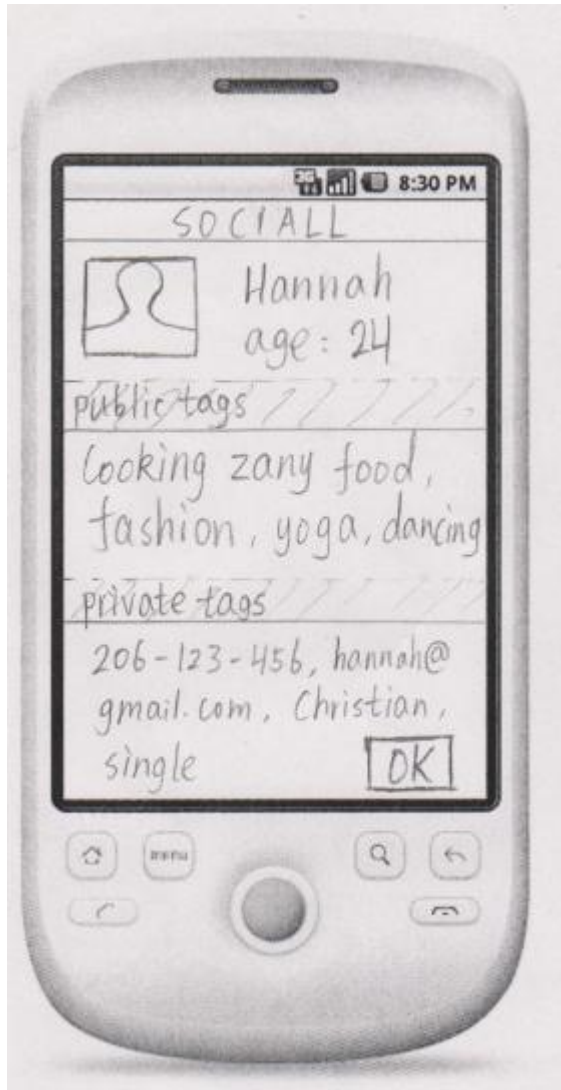 3G
8:30 PM
SOCIALL
Hannah
age: 24
public tags
Cooking zany food,
fashion, yoga, dancing
private tags
206-123-456, hannah@
gmail.com, Christian,
single
OK
menu